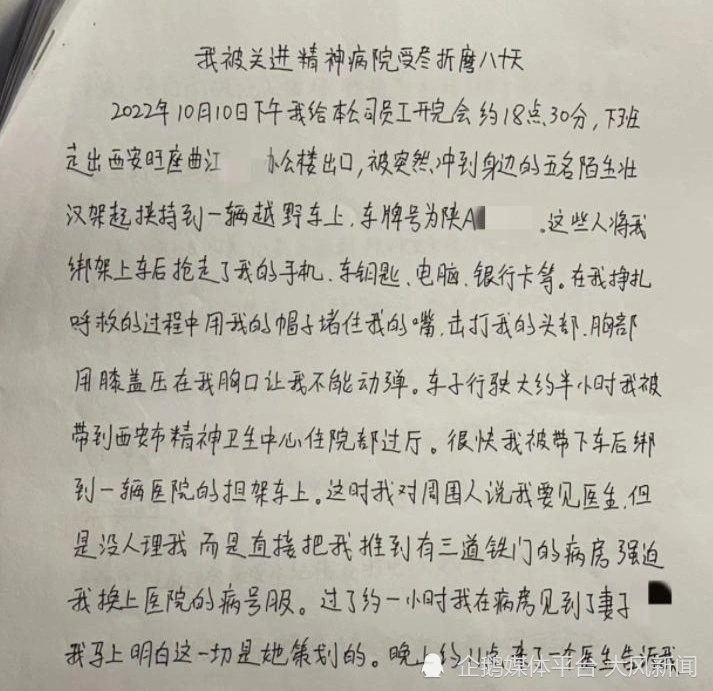 我被关进精神病院受尽折磨八十天
2022年10月10日下午我给本公司员工开完会约18点30分,下班
走出西安旺座曲江 办公楼出口,被突然冲到身边的五名陌生壮
汉架起挟持到一辆越野车上,车牌号为陕A 。这些人将我
绑架上车后抢走了我的手机、车钥匙、电脑、银行卡等。在我挣扎
呼救的过程中用我的帽子堵住我的嘴,击打我的头部、胸部
用膝盖压在我胸口让我不能动弹。车子行驶大约半小时我被
带到西安市精神卫生中心住院部过厅。很快我被带下车后绑
到一辆医院的担架车上。这时我对周围人说我要见医生,但
是没人理我 而是直接把我推到有三道铁门的病房 强迫
我换上医院的病号服。过了约一小时我在病房见到了妻子
我马上明白这一切是她策划的。晚上约11点,来了一个医生告诉我
企鹅媒体平台 大风新闻